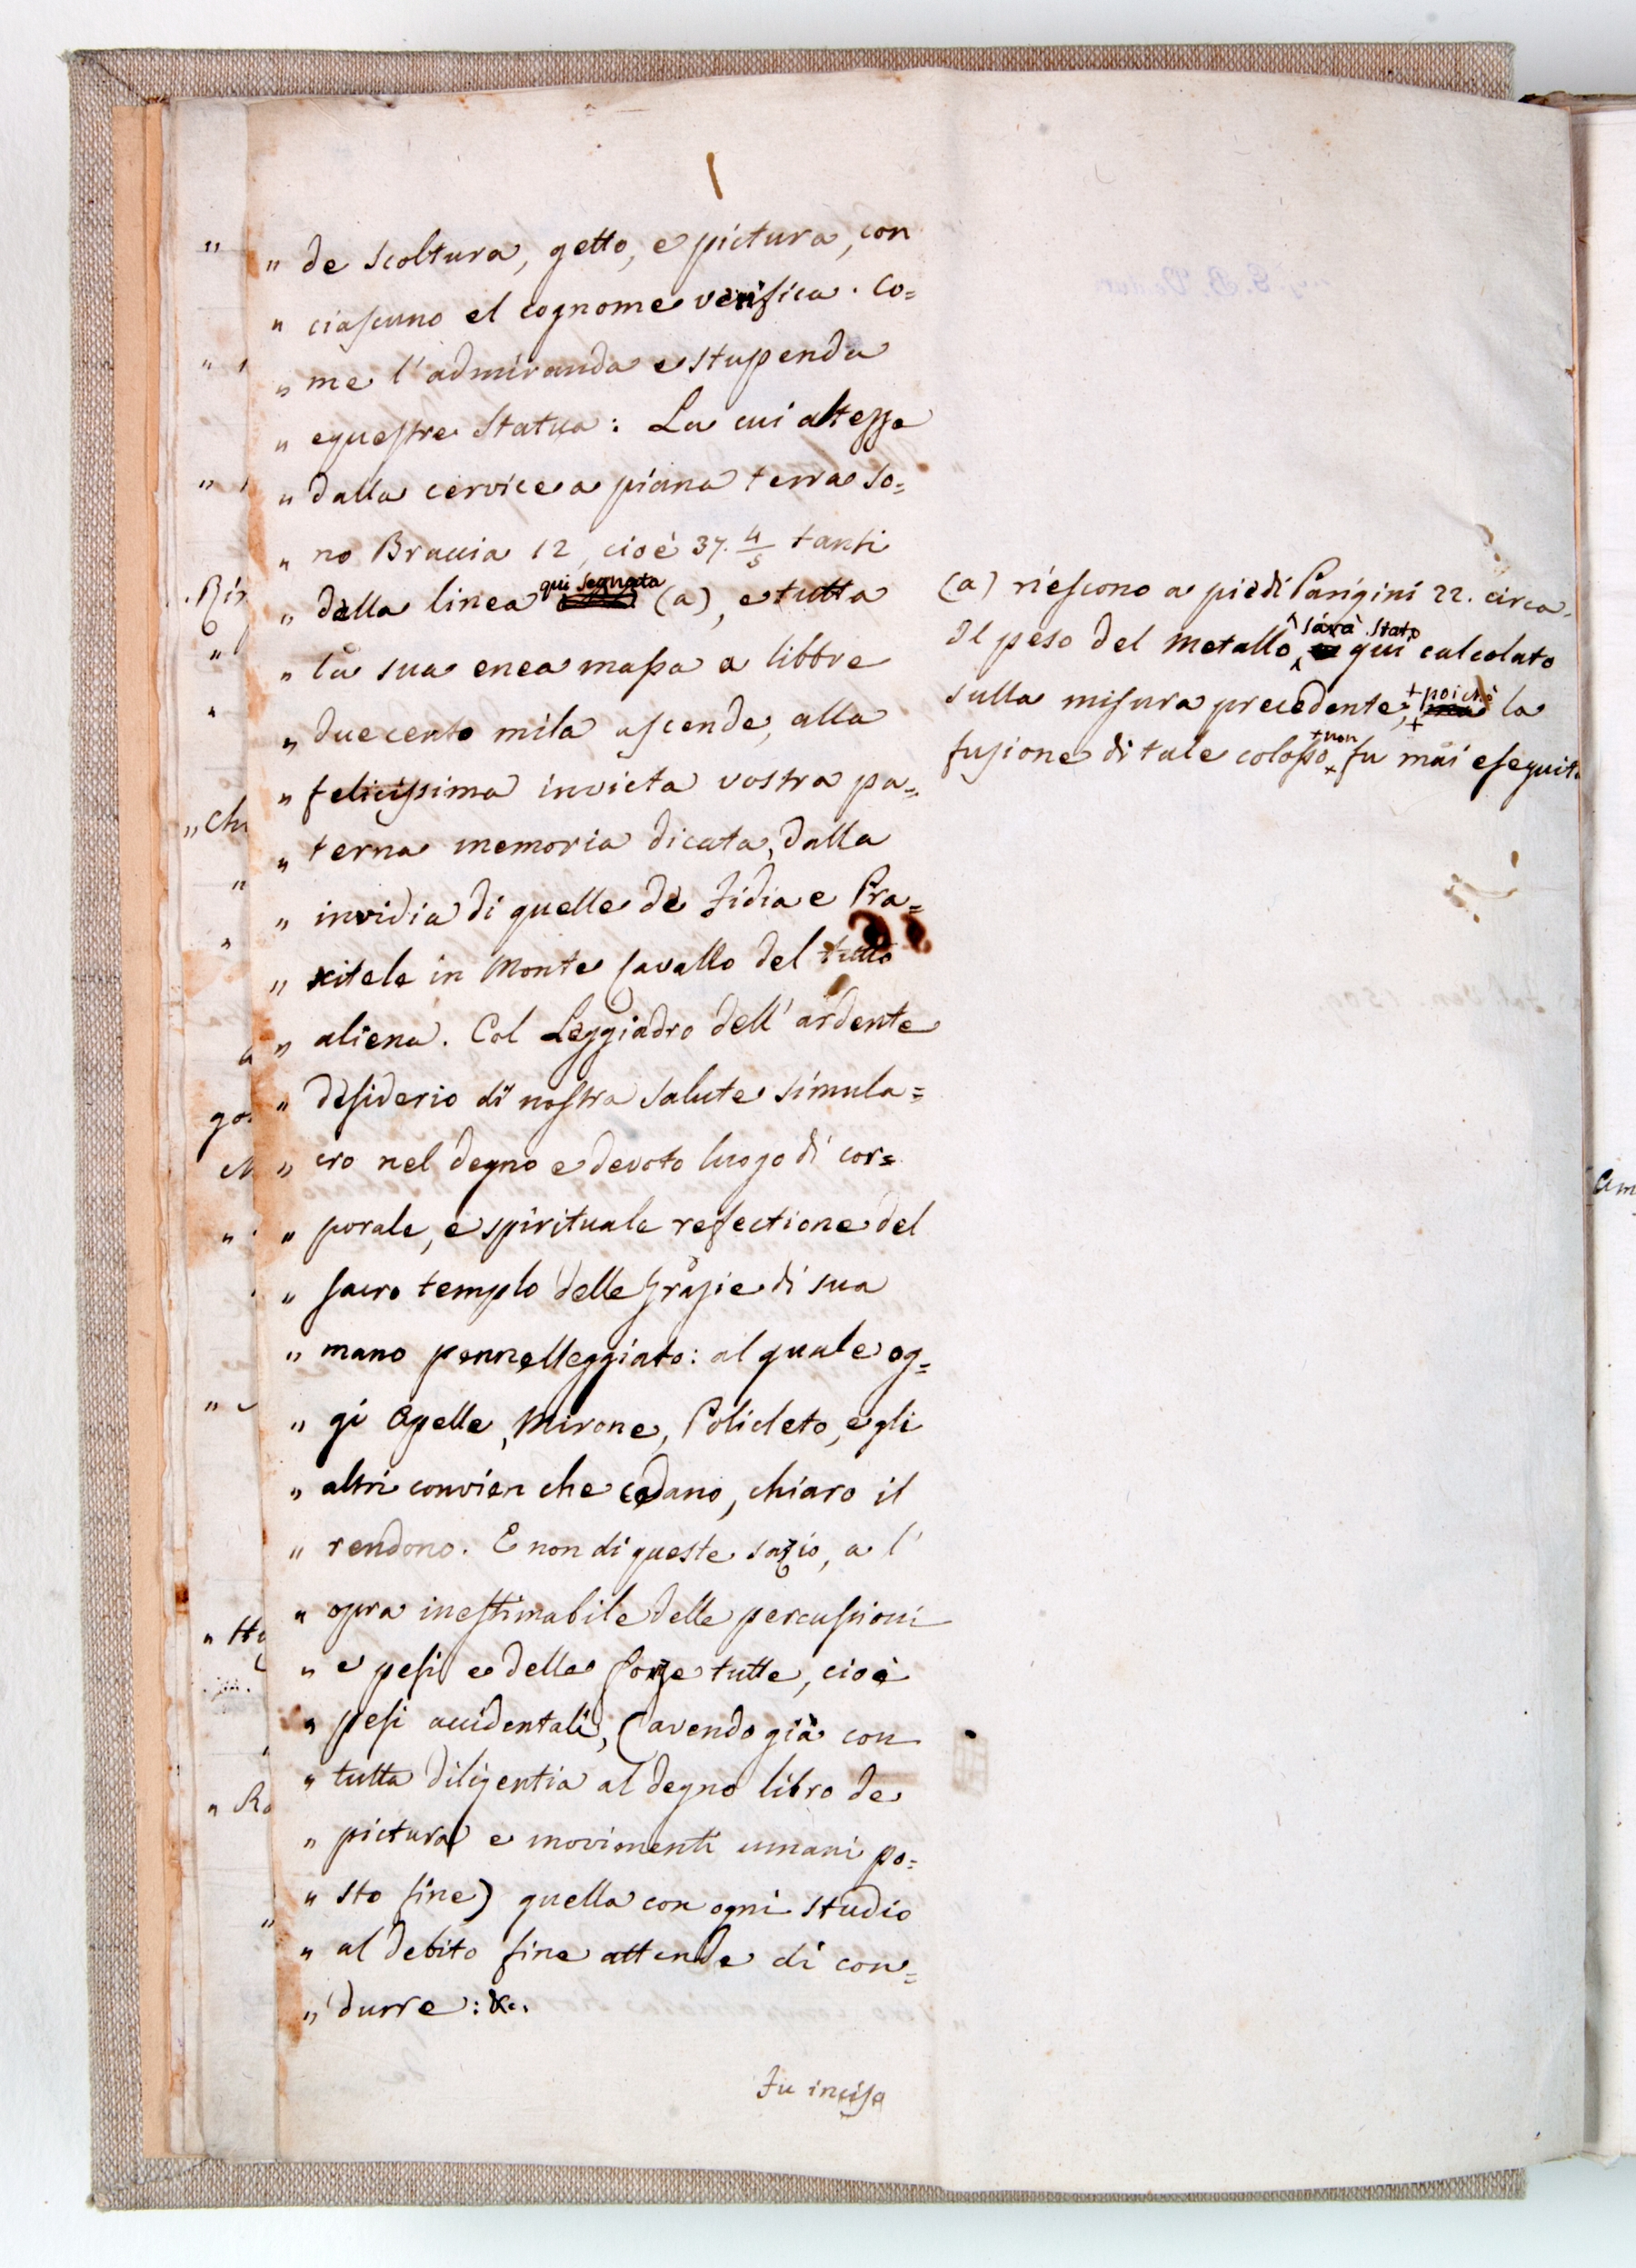 " de scoltura, getto, e pictura, con
" ciascuno el cognome verifica. Co=
" me l'admiranda e stupenda
" equestre statua: La cui altezza
" dalla cervice a piana terra so=
" no Braccia 12, cioè 37. 4/5 tanti
" della linea qui segnata (a), e tutta
" la sua enea massa a libbre
" duecento mila ascende, alla
" felicissima invicta vostra pa=
" terna memoria dicata, dalla
" invidia di quelle de Fidia e Pra=
" xitele in Monte Cavallo del tutto
" aliena. Col Leggiadro dell'ardente
" desiderio di nostra salute simula=
" cro nel degno e devoto luogo di cor=
" porale, e spirituale refectione del
" sacro templo delle Grazie di sua
" mano pennelleggiato: al quale og=
" gi Apelle, Mirone, Policleto, e gli
" altri convien che cedano, chiaro il
" rendono. E non di queste sazio, a l'
" opra inestimabile delle percussioni
" e pesi e delle forze tutte, cioè
" pesi accidentali, (avendo già con
" tutta diligentia al degno libro de
" pictura e movimenti umani po=
" sto fine) quella con ogni studio
" al debito fine attende di con=
" durre: &c.
Fu incisa
(a) riescono a piedi Parigini 22. circa.
Il peso del metallo sarà stato qui calcolato
sulla misura precedente, poichè la
fusione di tale colosso non fu mai eseguita